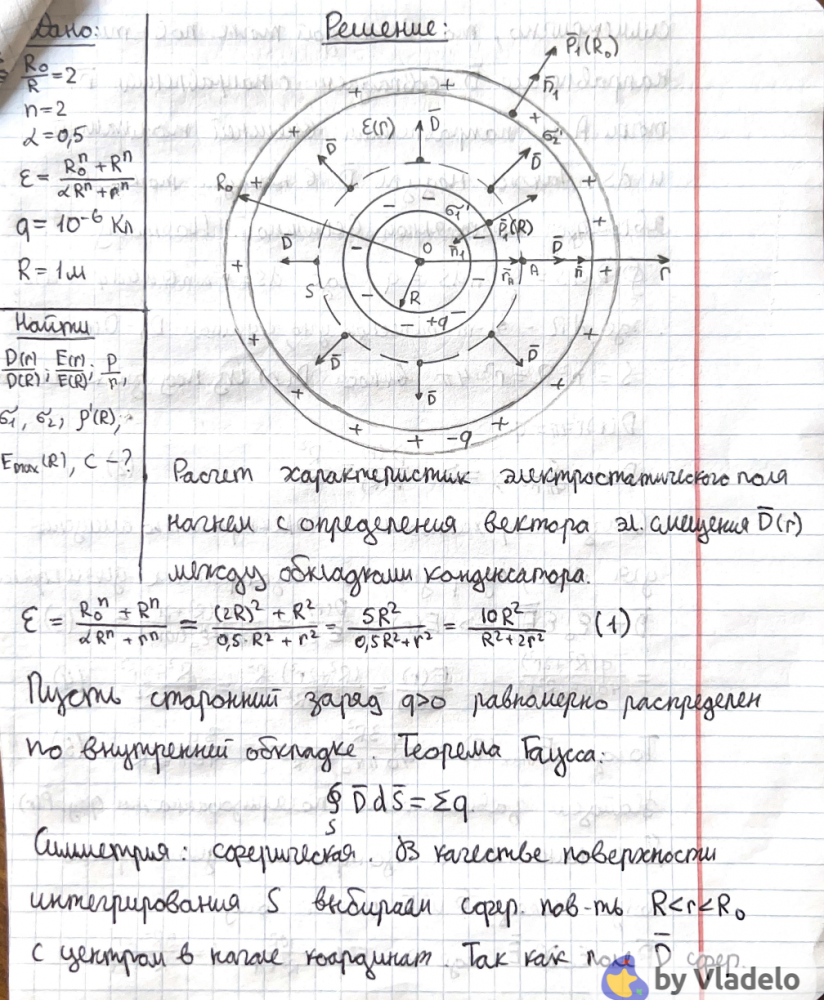 дано:
Решение:
R₀/R = 2
n = 2
α = 0,5
ε = (R₀ⁿ + Rⁿ)/(αRⁿ + rⁿ)
q = 10⁻⁶ Кл
R = 1м
Найти
D(r)/D(R); E(r)/E(R); P/n,
σ₁, σ₂, ρ'(R),
Eₘₐₓ(R), C – ?
P̄₁(R₀)
n̄₁
σ₂'
ε(r)
D̄
D̄
D̄
R₀
σ₁'
P̄₁(R)
n̄₁
O
D̄
r̄_A
A
D̄
n̄
r
S
R
+q
D̄
D̄
D̄
-q
Расчет характеристик электростатического поля
начнем с определения вектора эл. смещения D̄(r)
между обкладками конденсатора.
ε = (R₀ⁿ + Rⁿ)/(αRⁿ + rⁿ) = ((2R)² + R²)/(0,5·R² + r²) = 5R²/(0,5R² + r²) = 10R²/(R² + 2r²) (1)
Пусть сторонний заряд q>0 равномерно распределен
по внутренней обкладке. Теорема Гаусса:
∮ D̄ dS̄ = Σq.
S
Симметрия: сферическая. В качестве поверхности
интегрирования S выбираем сфер. пов-ть R<r<R₀
с центром в начале координат. Так как поле D̄ сфер.
by Vladelo